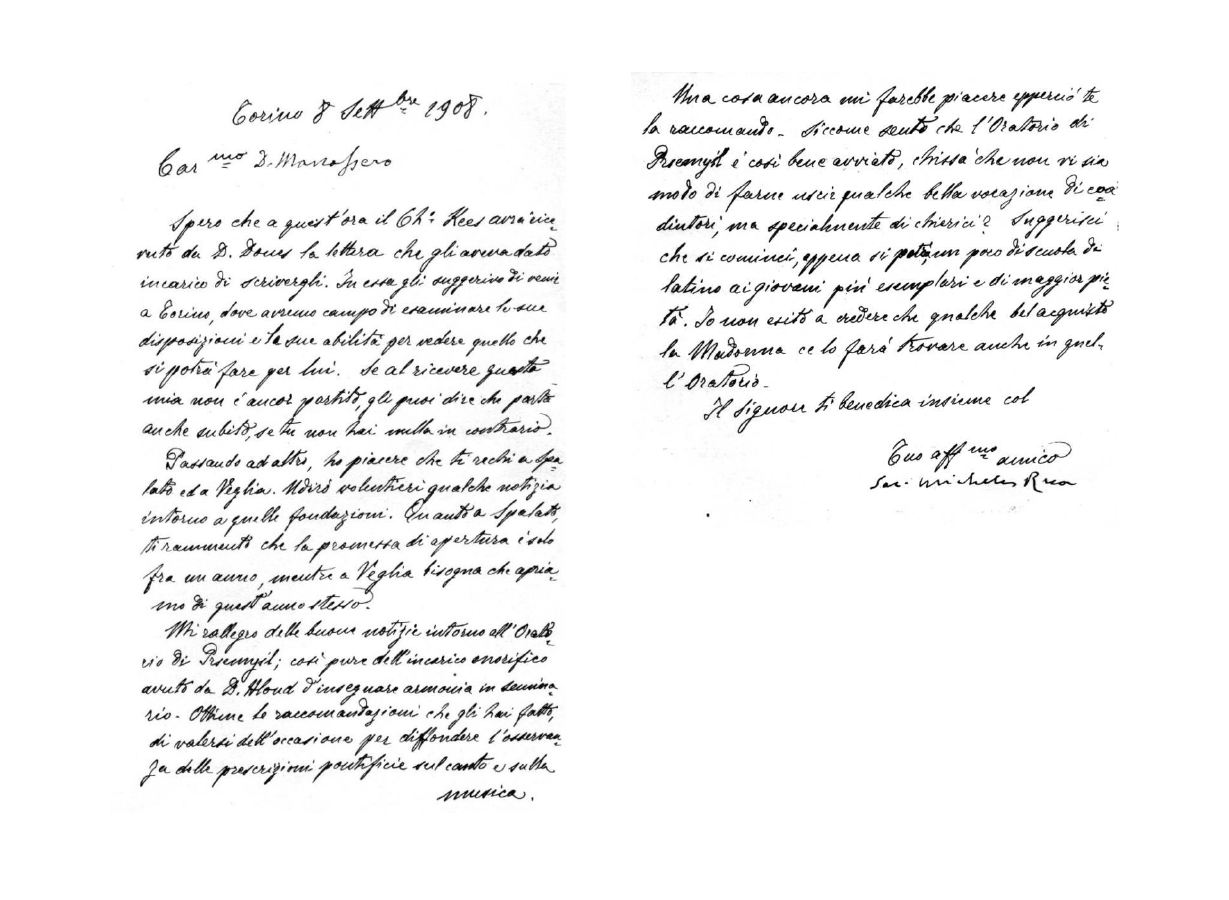 Torino 8 Settbre 1908.
Carmo D. Manassero
Spero che a quest'ora il Ch. Kees avrà rice-
vuto da D. Dones la lettera che gli aveva dato
incarico di scrivergli. In essa gli suggerivo di venir
a Torino, dove avremo campo di esaminare le sue
disposizioni e la sua abilità per vedere quello che
si potrà fare per lui. Se al ricevere questa
mia non è ancor partito, gli puoi dire che parta
anche subito, se tu non hai nulla in contrario.
Passando ad altro, ho piacere che ti rechi a Spa-
lato ed a Veglia. Udirò volentieri qualche notizia
intorno a quelle fondazioni. Quanto a Spalato,
ti rammento che la promessa di apertura è solo
fra un anno, mentre a Veglia bisogna che apria-
mo di quest'anno stesso.
Mi rallegro delle buone notizie intorno all'Orato-
rio di Przemysl; così pure dell'incarico onorifico
avuto da D. Hlond d'insegnare armonia in semina-
rio. Ottime le raccomandazioni che gli hai fatto,
di valersi dell'occasione per diffondere l'osservan-
za delle prescrizioni pontificie sul canto e sulla
musica.
Una cosa ancora mi farebbe piacere epperciò te
la raccomando. Siccome sento che l'Oratorio di
Przemysl è così bene avviato, chissà che non vi sia
modo di farne uscir qualche bella vocazione di coa
diutori, ma specialmente di chierici? Suggerisci
che si cominci, appena si potrà, un poco di scuola di
latino ai giovani più esemplari e di maggior pie-
tà. Io non esito a credere che qualche bel acquisto
la Madonna ce lo farà trovare anche in quel-
l'Oratorio.
Il Signore ti benedica insieme col
Tuo affmo amico
Sac. Michele Rua